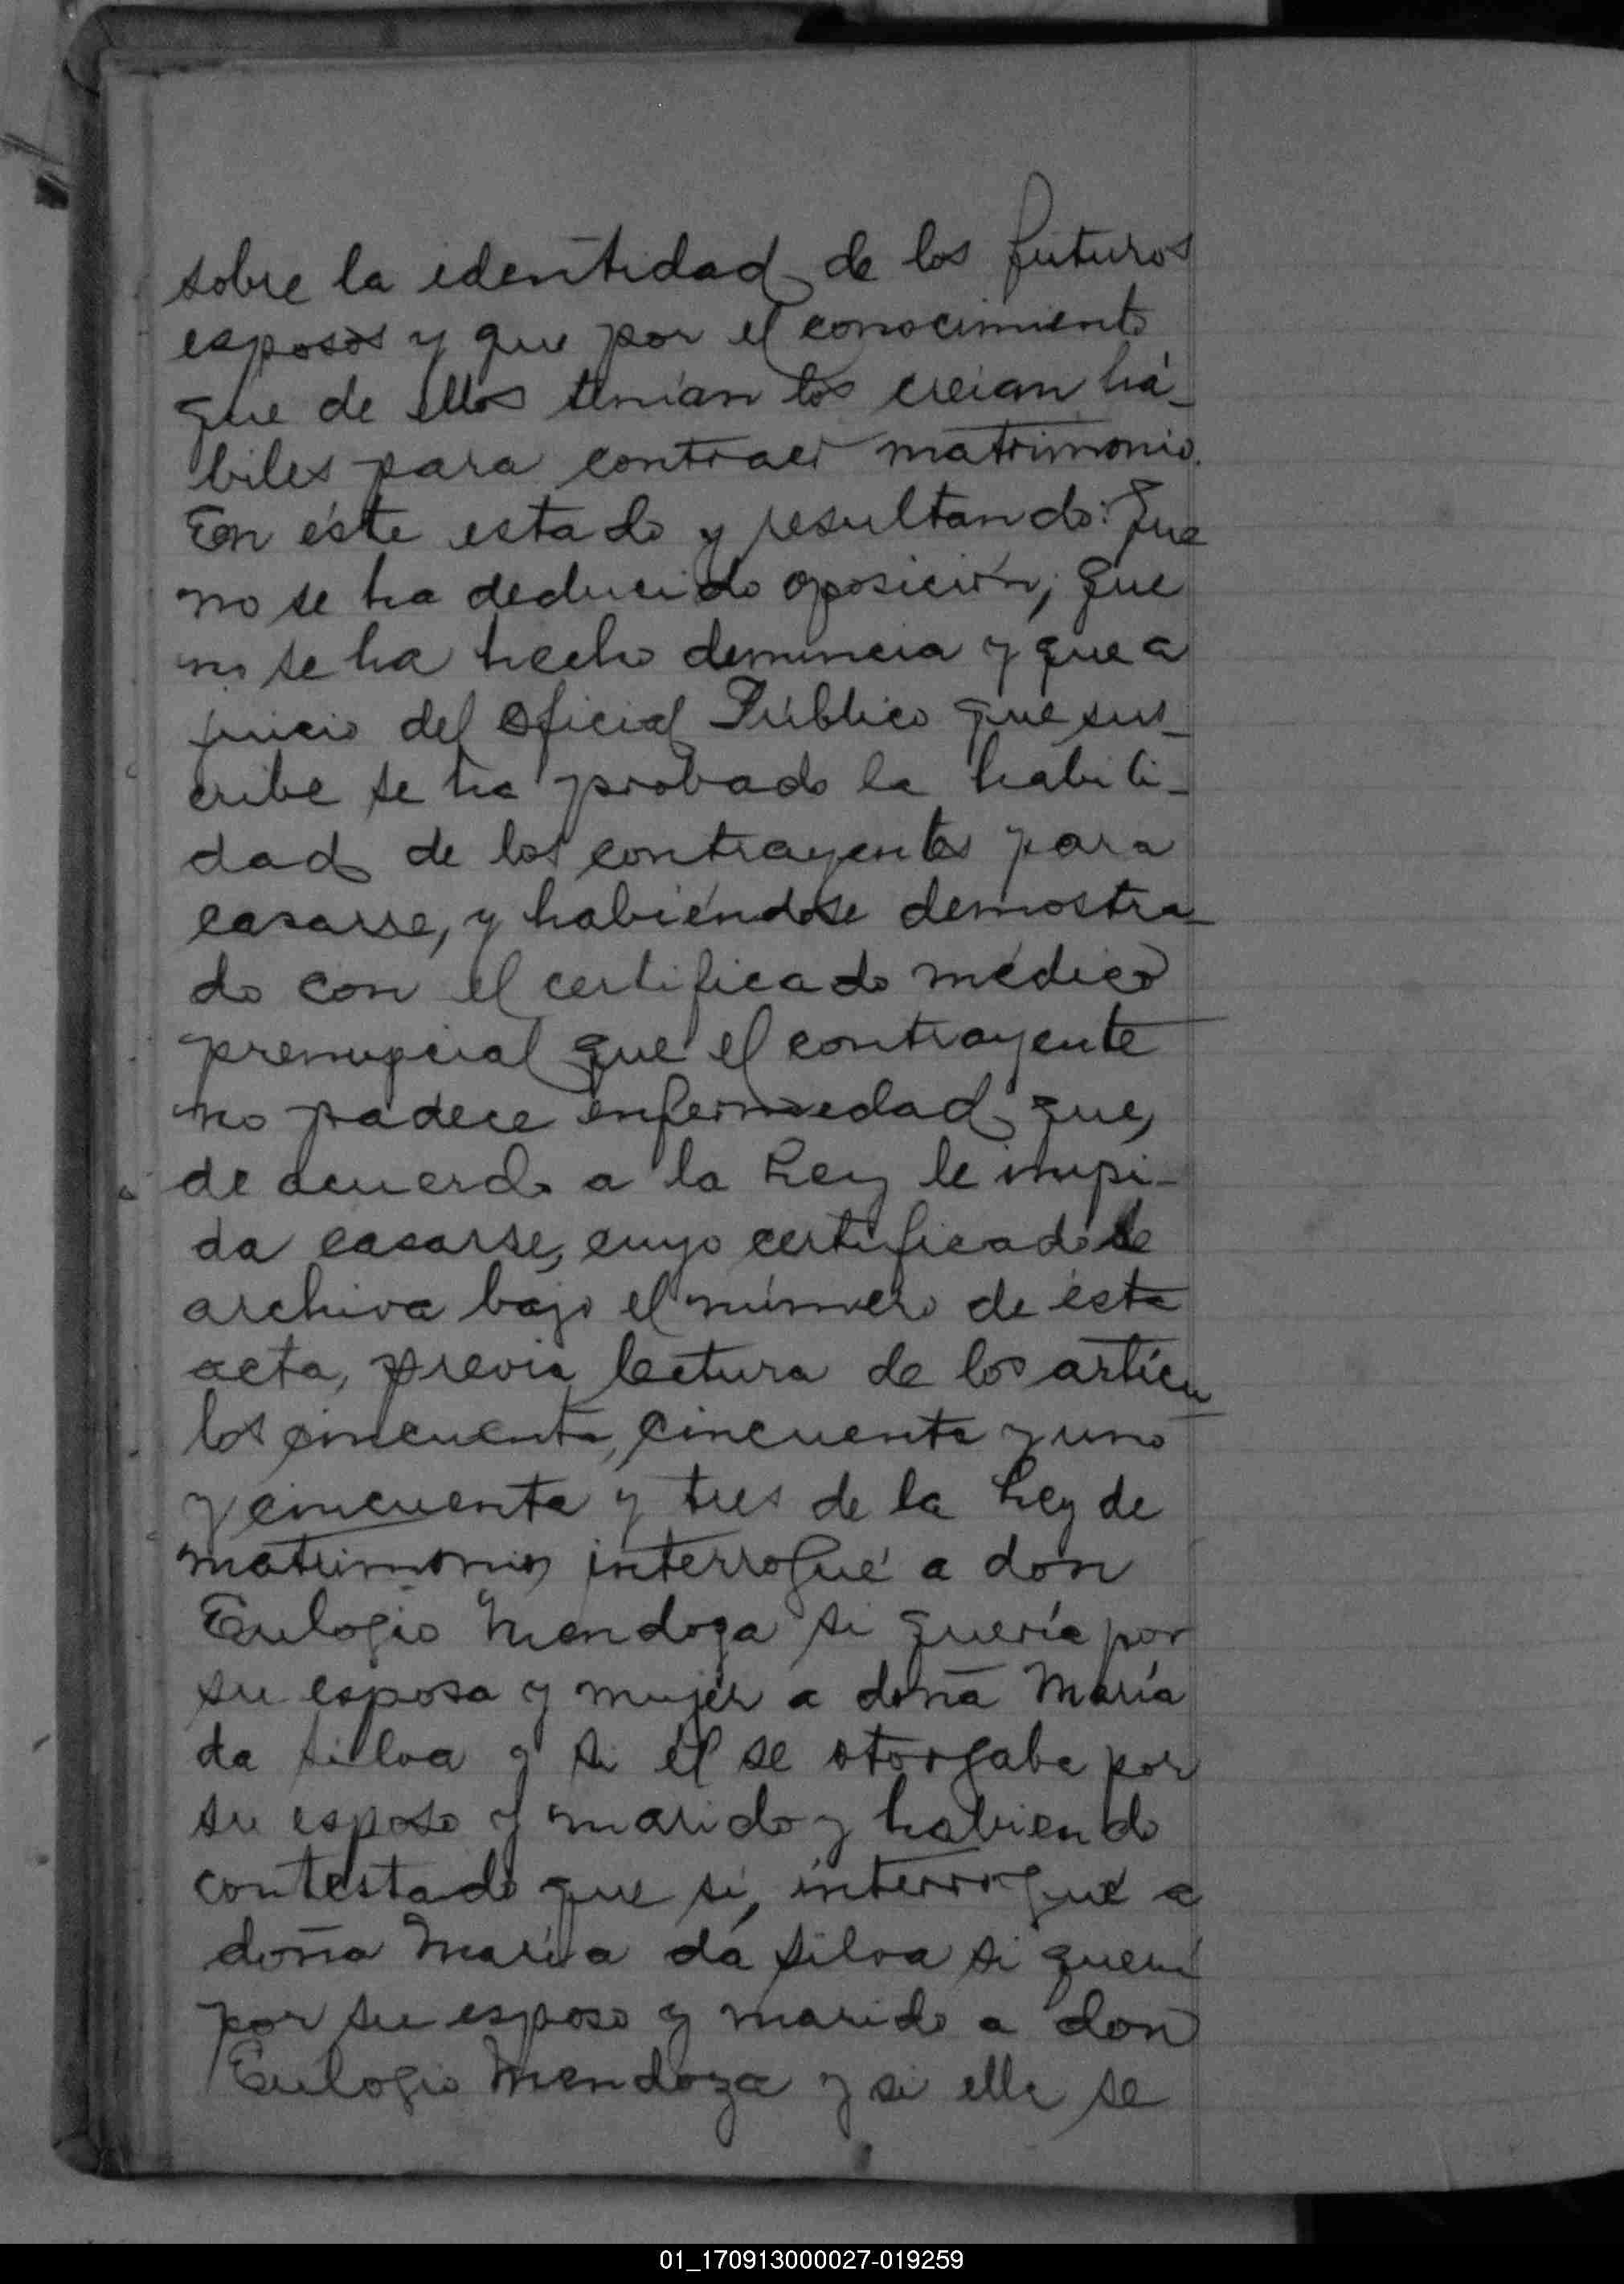 sobre la identidad de los futuros
esposos y que por el conocimiento
que de ellos tenían los creían há-
biles para contraer matrimonio.
En éste estado y resultando: Que
no se ha deducido oposición; que
no se ha hecho denuncia y que a
juicio del Oficial Público que sus-
cribe se ha probado la habili-
dad de los contrayentes para
casarse, y habiéndose demostra-
do con el certificado médico
prenupcial que el contrayente
no padece enfermedad que,
de acuerdo a la Ley le impi-
da casarse, cuyo certificado se
archiva bajo el número de ésta
acta, previa lectura de los artícu
los cincuenta, cincuenta y uno
y cincuenta y tres de la Ley de
matrimonio, interrogué a don
Eulogio Mendoza si quería por
su esposa y mujer a doña María
da Silva y si él se otorgaba por
su esposo y marido y habiendo
contestado que sí, interrogué a
doña María da Silva si querí
por su esposo y marido a don
Eulogio Mendoza y si ella se
01_170913000027-019259